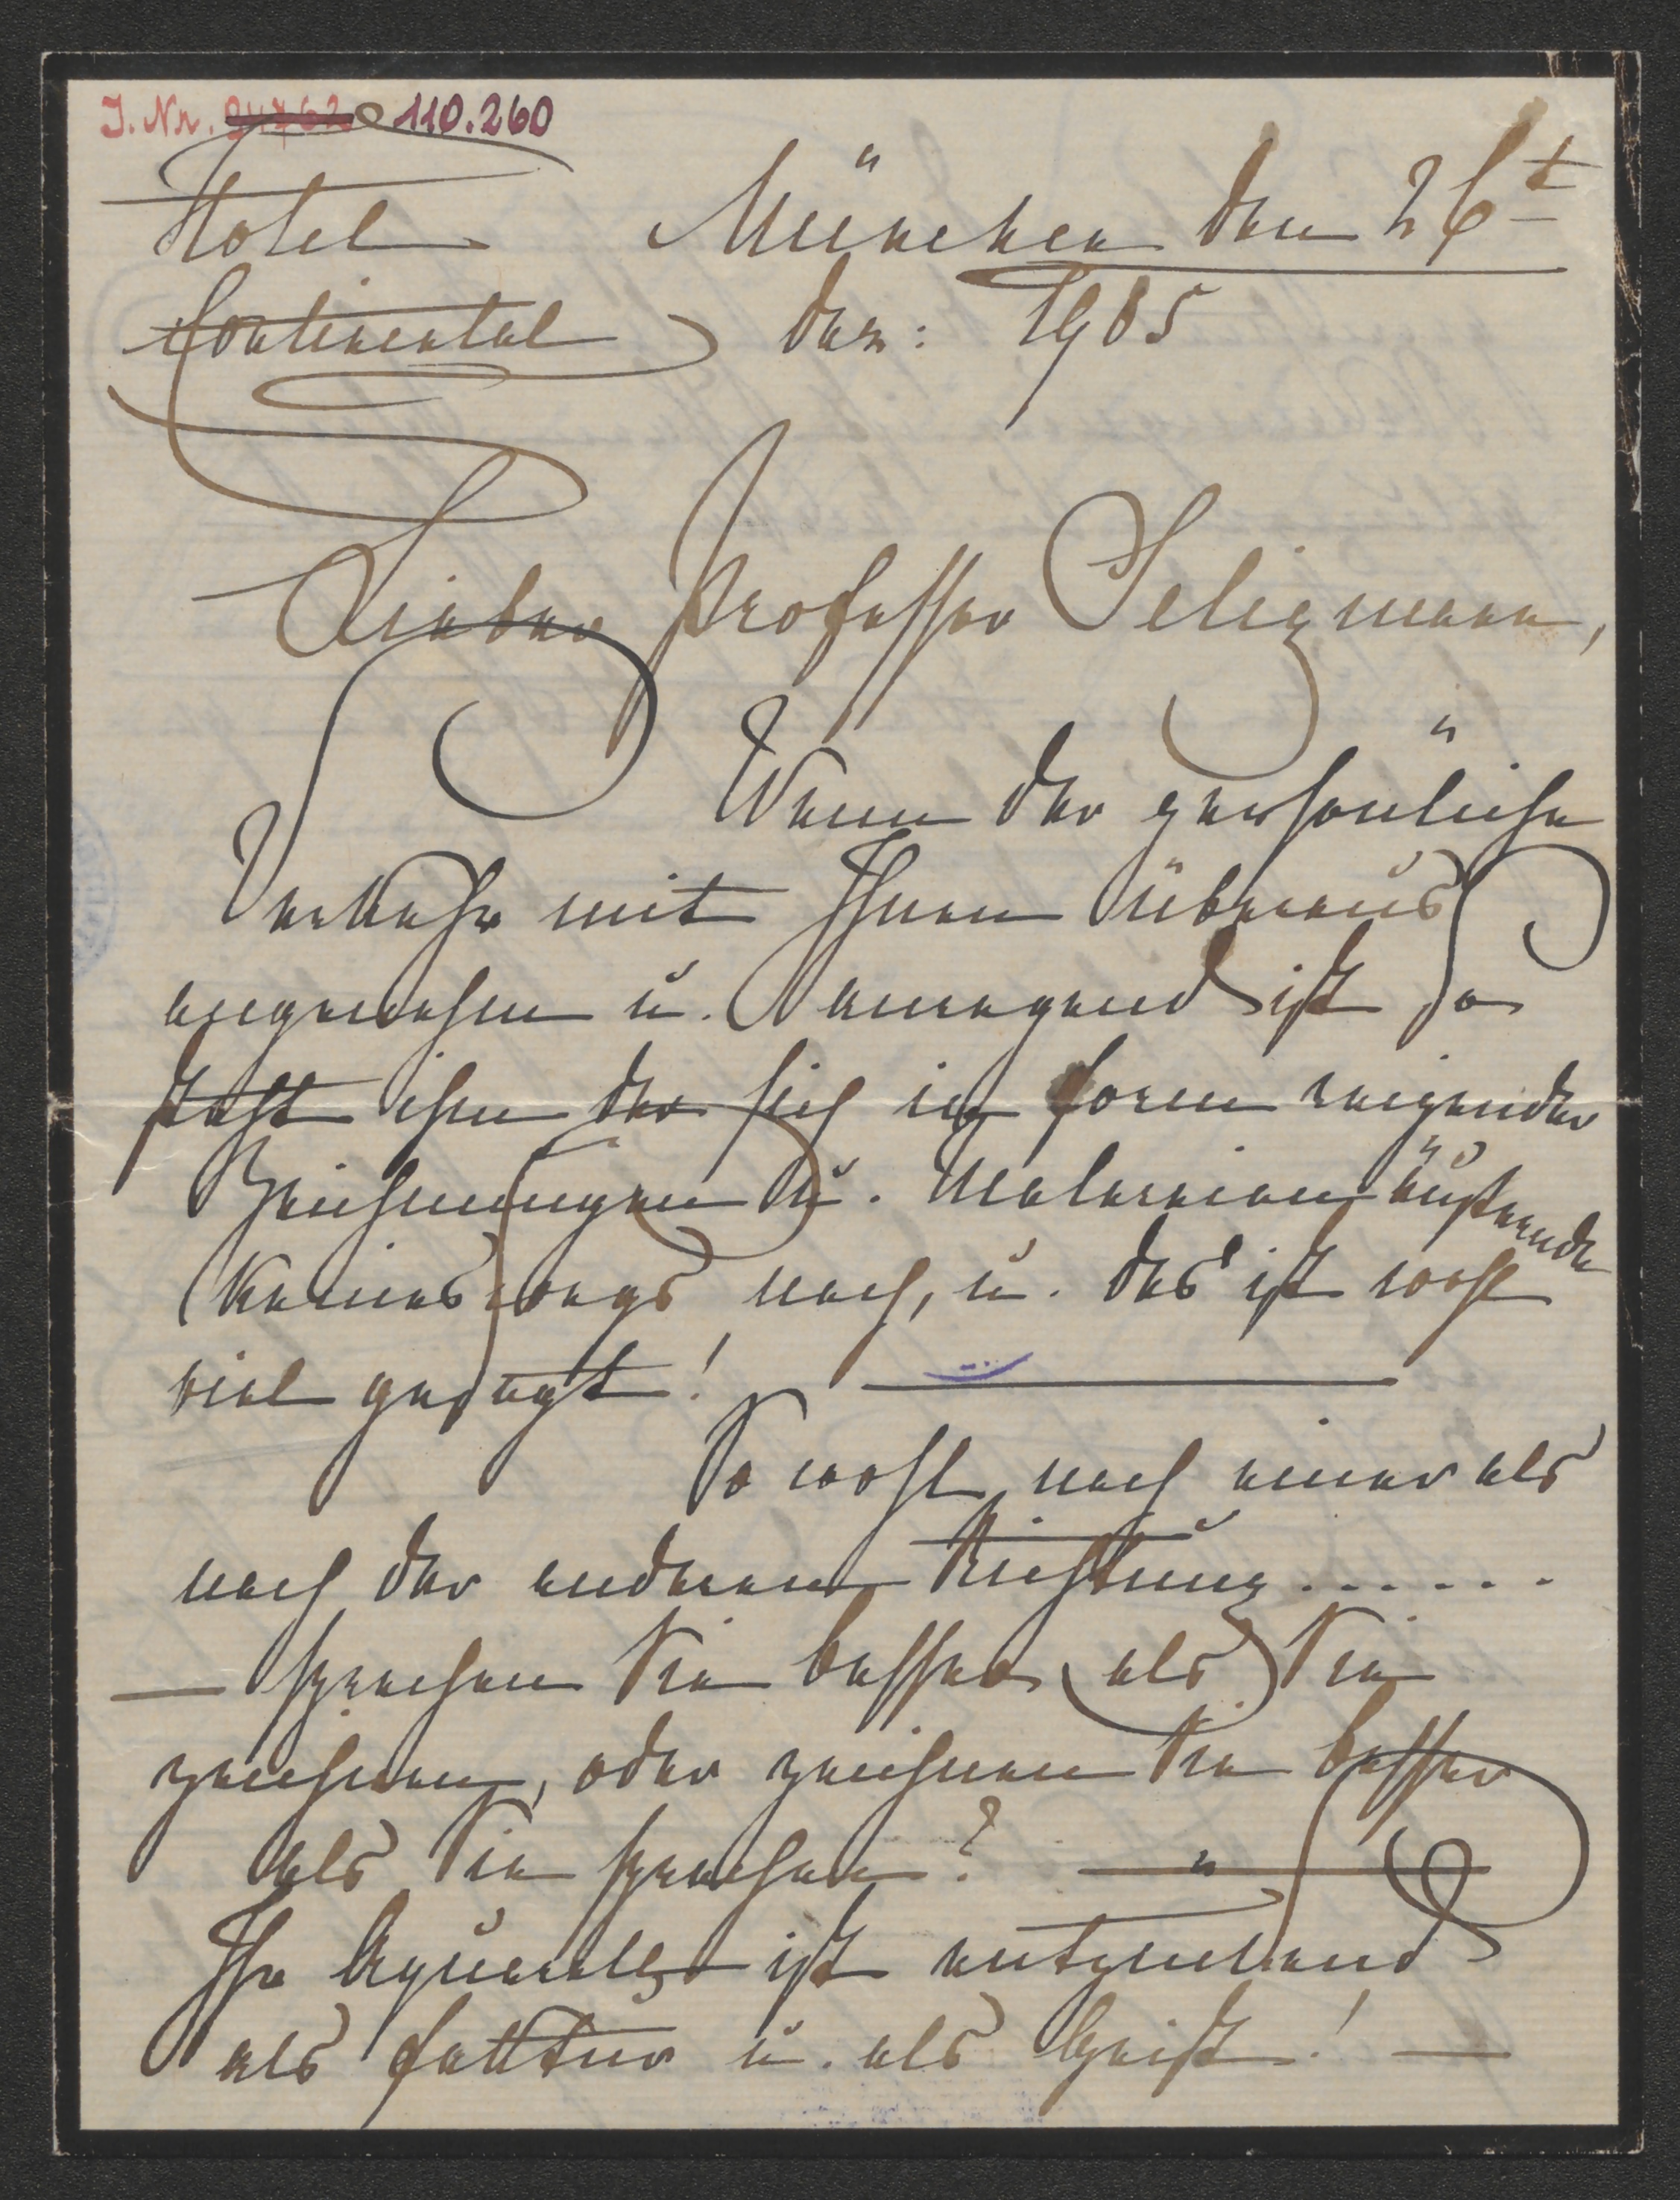 J. Nr. 94762 110.260
Hotel München den 26t
Continental Dez: 1905
Lieber Professor Seligmann,
Wenn der persönliche
Verkehr mit Ihnen überaus
angenehm u. anregend ist so
steht ihm der sich in form reizender
Zeichnungen u. Malereien äußernde
keineswegs nach, u. das ist wohl
viel gesagt!
So wohl nach einer als
nach der anderen Richtung......
— sprechen Sie besser als Sie
zeichnen, oder zeichnen Sie besser
als Sie sprechen? —
Ihr Aquarell ist entzückend
als faktur u. als Geist! —